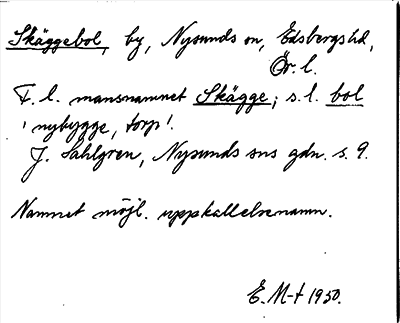 Skäggebol, by, Nysunds sn, Edsbergs hd,
Ör. l.
F. l. mansnamnet Skägge; s. l. bol
'nybygge, torp'.
J. Sahlgren, Nysunds sns gdn. s. 9.
Namnet möjl. uppkallelsenamn.
E. M-t 1950.